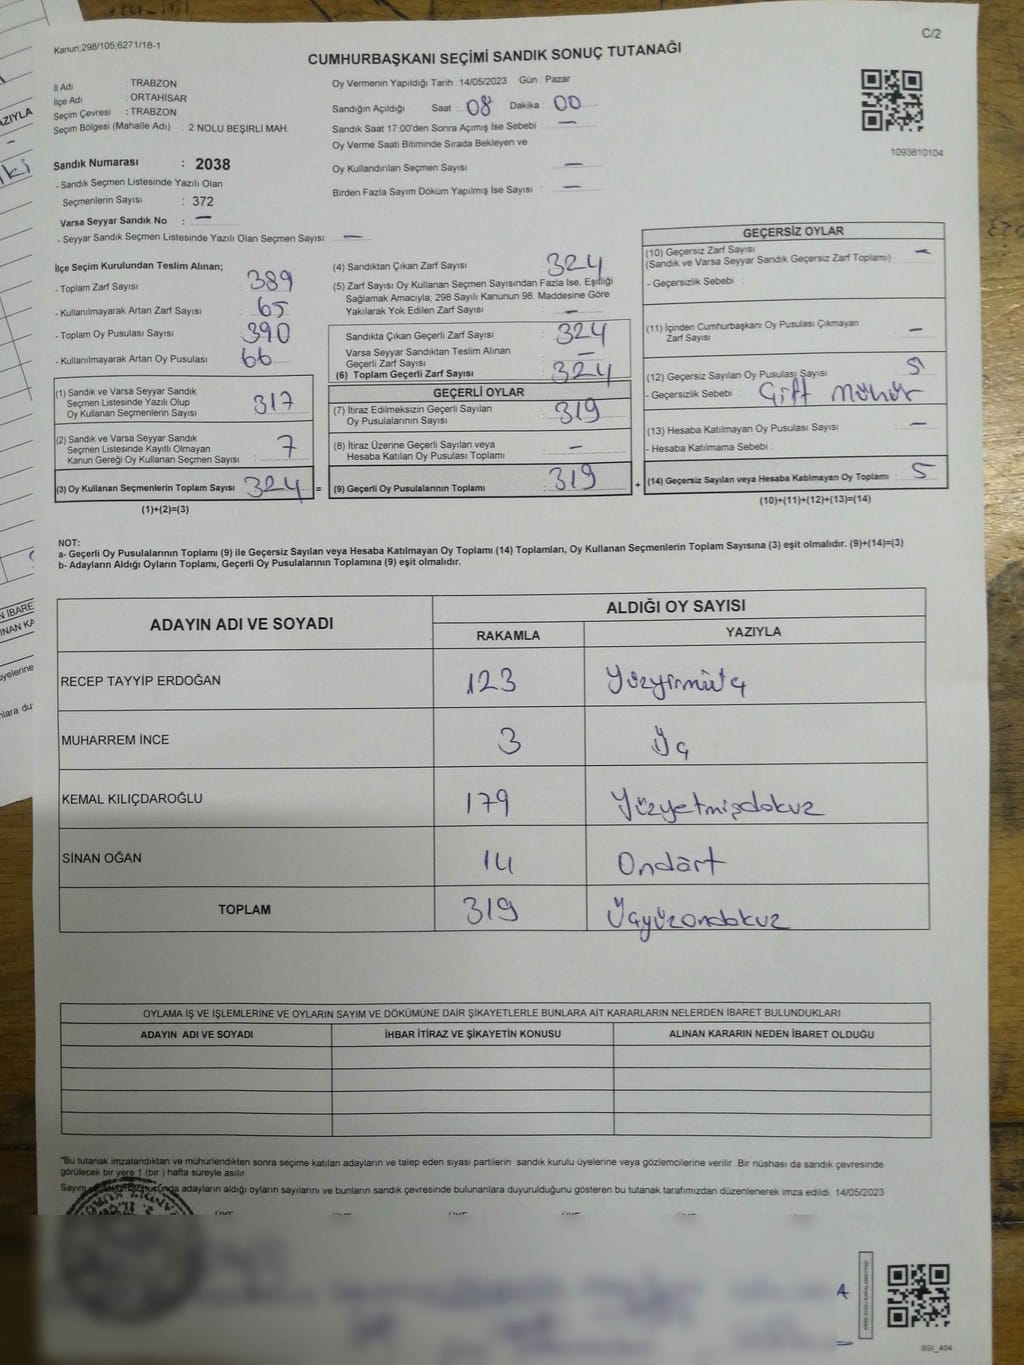 Kanun.298/105;6271/18-1
C/2
CUMHURBAŞKANI SEÇİMİ SANDIK SONUÇ TUTANAĞI
İl Adı : TRABZON
İlçe Adı : ORTAHİSAR
Seçim Çevresi : TRABZON
Seçim Bölgesi (Mahalle Adı) : 2 NOLU BEŞİRLİ MAH.
Sandık Numarası : 2038
- Sandık Seçmen Listesinde Yazılı Olan
Seçmenlerin Sayısı : 372
Varsa Seyyar Sandık No : —
- Seyyar Sandık Seçmen Listesinde Yazılı Olan Seçmen Sayısı: —
Oy Vermenin Yapıldığı Tarih : 14/05/2023 Gün : Pazar
Sandığın Açıldığı Saat : 08 Dakika : 00
Sandık Saat 17:00'den Sonra Açımış İse Sebebi : —
Oy Verme Saati Bitiminde Sırada Bekleyen ve
Oy Kullandırılan Seçmen Sayısı : —
Birden Fazla Sayım Döküm Yapılmış İse Sayısı : —
1093810104
İlçe Seçim Kurulundan Teslim Alınan;
- Toplam Zarf Sayısı : 389
- Kullanılmayarak Artan Zarf Sayısı : 65
- Toplam Oy Pusulası Sayısı : 390
- Kullanılmayarak Artan Oy Pusulası : 66
(1) Sandık ve Varsa Seyyar Sandık
Seçmen Listesinde Yazılı Olup
Oy Kullanan Seçmenlerin Sayısı : 317
(2) Sandık ve Varsa Seyyar Sandık
Seçmen Listesinde Kayıtlı Olmayan
Kanun Gereği Oy Kullanan Seçmen Sayısı : 7
(3) Oy Kullanan Seçmenlerin Toplam Sayısı : 324 =
(1)+(2)=(3)
(4) Sandıktan Çıkan Zarf Sayısı : 324
(5) Zarf Sayısı Oy Kullanan Seçmen Sayısından Fazla İse, Eşitliği
Sağlamak Amacıyla, 298 Sayılı Kanunun 98. Maddesine Göre
Yakılarak Yok Edilen Zarf Sayısı : —
Sandıkta Çıkan Geçerli Zarf Sayısı : 324
Varsa Seyyar Sandıktan Teslim Alınan
Geçerli Zarf Sayısı : —
(6) Toplam Geçerli Zarf Sayısı : 324
GEÇERLİ OYLAR
(7) İtiraz Edilmeksizin Geçerli Sayılan
Oy Pusulalarının Sayısı : 319
(8) İtiraz Üzerine Geçerli Sayılan veya
Hesaba Katılan Oy Pusulası Toplamı : —
(9) Geçerli Oy Pusulalarının Toplamı : 319 +
GEÇERSİZ OYLAR
(10) Geçersiz Zarf Sayısı : —
(Sandık ve Varsa Seyyar Sandık Geçersiz Zarf Toplamı)
- Geçersizlik Sebebi :
(11) İçinden Cumhurbaşkanı Oy Pusulası Çıkmayan
Zarf Sayısı : —
(12) Geçersiz Sayılan Oy Pusulası Sayısı : 5
- Geçersizlik Sebebi : Çift Mühür
(13) Hesaba Katılmayan Oy Pusulası Sayısı : —
- Hesaba Katılmama Sebebi :
(14) Geçersiz Sayılan veya Hesaba Katılmayan Oy Toplamı : 5
(10)+(11)+(12)+(13)=(14)
NOT:
a- Geçerli Oy Pusulalarının Toplamı (9) ile Geçersiz Sayılan veya Hesaba Katılmayan Oy Toplamı (14) Toplamları, Oy Kullanan Seçmenlerin Toplam Sayısına (3) eşit olmalıdır. (9)+(14)=(3)
b- Adayların Aldığı Oyların Toplamı, Geçerli Oy Pusulalarının Toplamına (9) eşit olmalıdır.
ADAYIN ADI VE SOYADI
ALDIĞI OY SAYISI
RAKAMLA YAZIYLA
RECEP TAYYİP ERDOĞAN 123 Yüzyirmiüç
MUHARREM İNCE 3 Üç
KEMAL KILIÇDAROĞLU 179 Yüzyetmişdokuz
SİNAN OĞAN 14 Ondört
TOPLAM 319 Üçyüzondokuz
OYLAMA İŞ VE İŞLEMLERİNE VE OYLARIN SAYIM VE DÖKÜMÜNE DAİR ŞİKAYETLERLE BUNLARA AİT KARARLARIN NELERDEN İBARET BULUNDUKLARI
ADAYIN ADI VE SOYADI İHBAR İTİRAZ VE ŞİKAYETİN KONUSU ALINAN KARARIN NEDEN İBARET OLDUĞU
*Bu tutanak imzalandıktan ve mühürlendikten sonra seçime katılan adayların ve talep eden siyasi partilerin sandık kurulu üyelerine veya gözlemcilerine verilir .Bir nüshası da sandık çevresinde
görülecek bir yere 1 (bir ) hafta süreyle asılır.
adayların aldığı oyların sayılarını ve bunların sandık çevresinde bulunanlara duyurulduğunu gösteren bu tutanak tarafımızdan düzenlenerek imza edildi. 14/05/2023
SSI_404